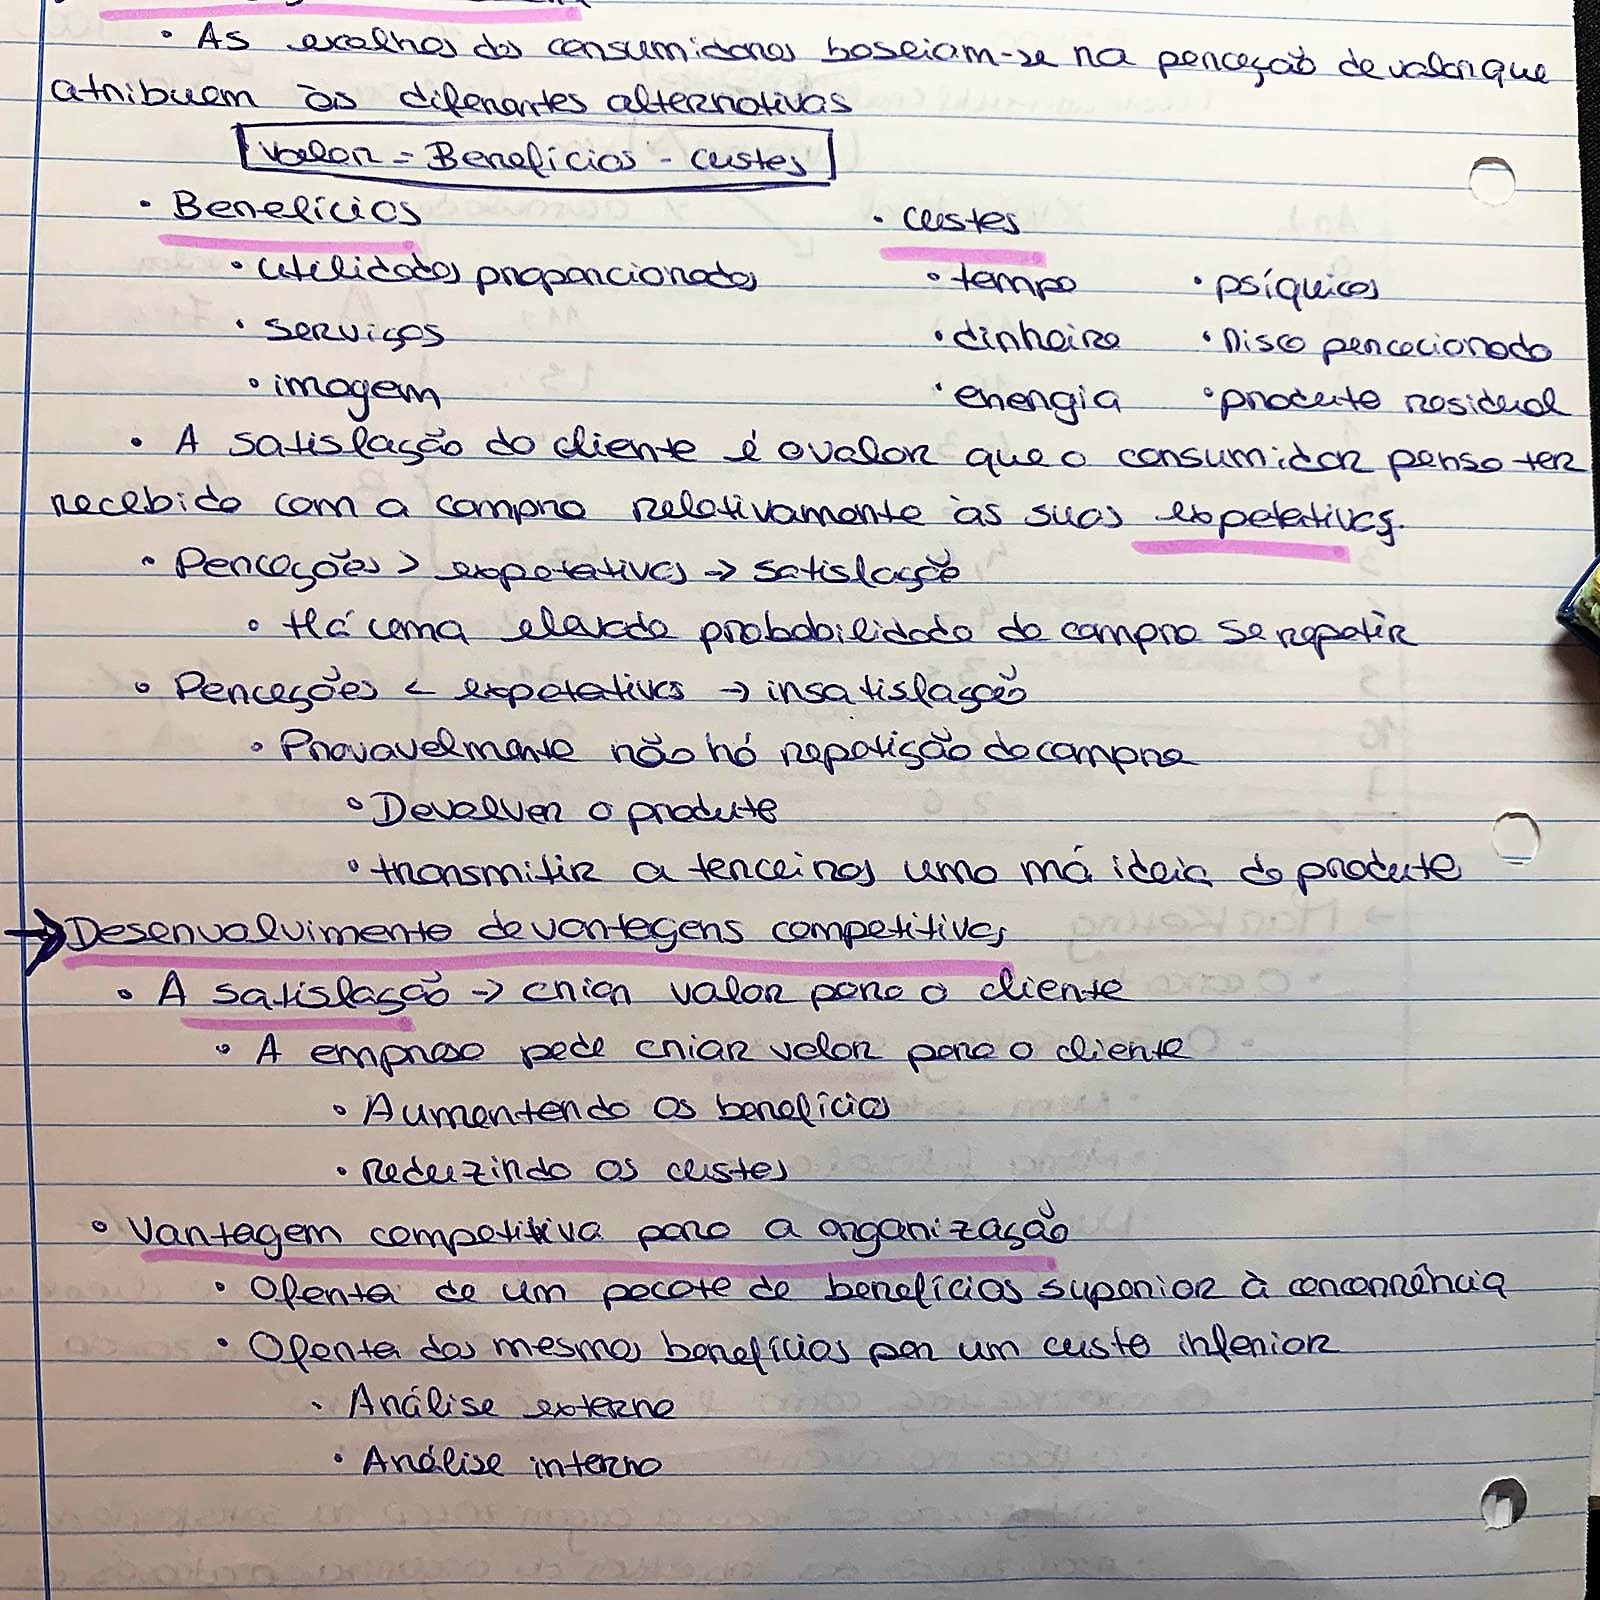 • As escolhas dos consumidores baseiam-se na perceção de valor que
atribuem às diferentes alternativas
Valor = Benefícios - custos
• Benefícios
• custos
• utilidades proporcionadas
• tempo
• psíquicos
• serviços
• dinheiro
• risco percecionado
• imagem
• energia
• produto residual
• A satisfação do cliente é o valor que o consumidor pensa ter
recebido com a compra relativamente às suas expetativas.
• Perceções > expetativas → satisfação
• Há uma elevada probabilidade da compra se repetir
• Perceções < expetativas → insatisfação
• Provavelmente não há repetição da compra
• Devolver o produto
• transmitir a terceiros uma má ideia do produto
→ Desenvolvimento de vantagens competitivas
• A satisfação → criar valor para o cliente
• A empresa pode criar valor para o cliente
• Aumentando os benefícios
• Reduzindo os custos
• Vantagem competitiva para a organização
• Oferta de um pacote de benefícios superior à concorrência
• Oferta dos mesmos benefícios por um custo inferior
• Análise externa
• Análise interna